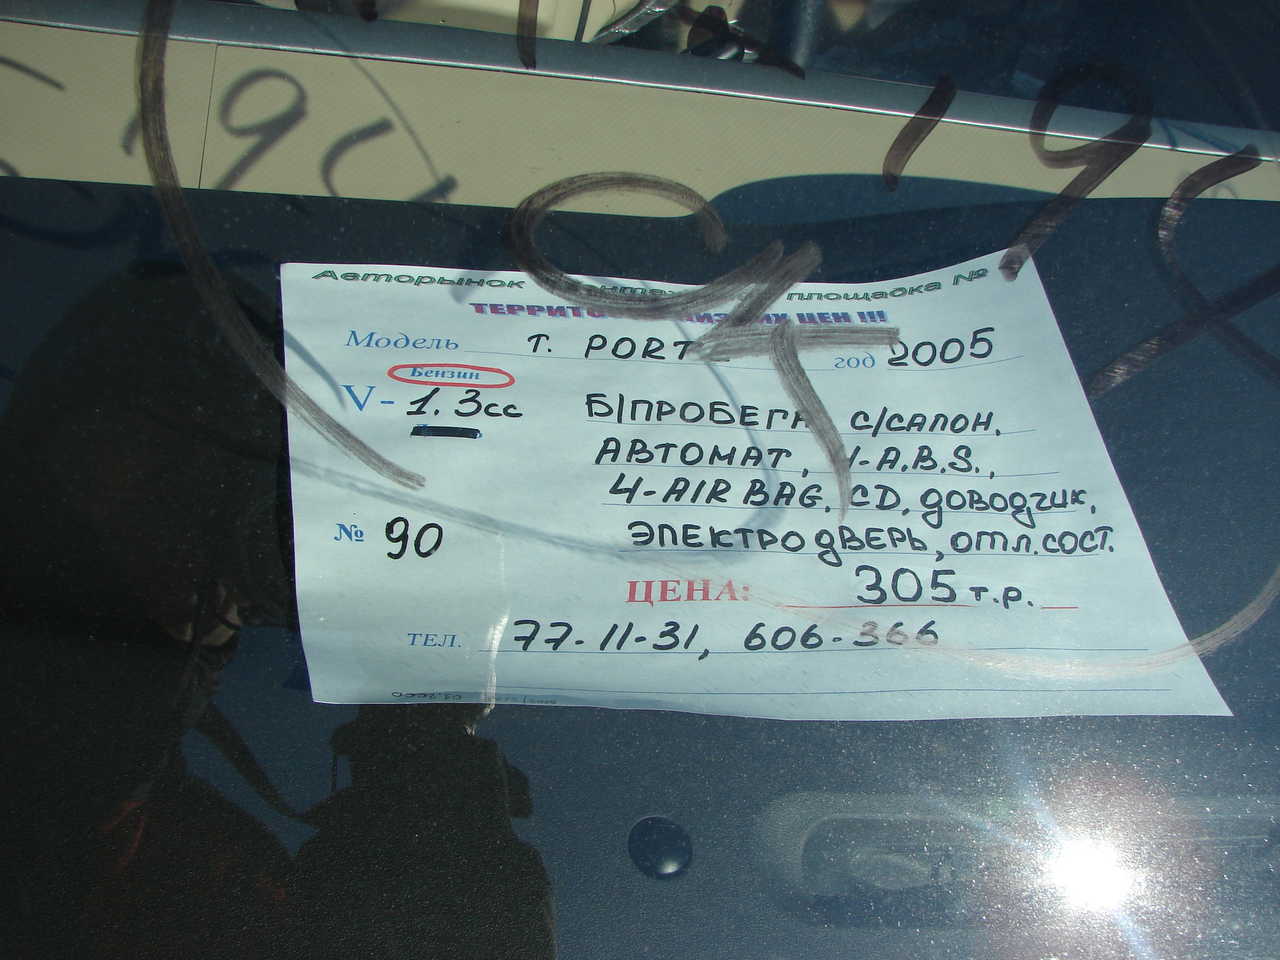 Авторынок площадка №
ТЕРРИТО ЦЕН !!!
Модель T. PORT год 2005
Бензин
V- 1.3cc Б/ПРОБЕГА С/САЛОН,
АВТОМАТ, A.B.S.,
4-AIR BAG, CD, доводчик,
№ 90 ЭЛЕКТРО дВЕРЬ, отл.сост.
ЦЕНА: 305 т.р.
ТЕЛ. 77-11-31, 606-366